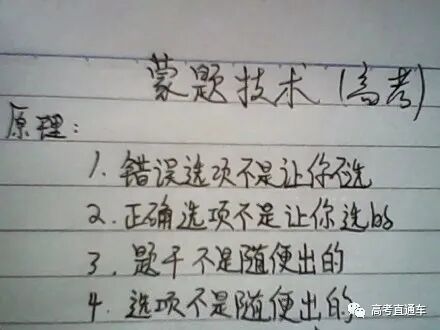 蒙题技术(高考)
原理:
1. 错误选项不是让你不选
2. 正确选项不是让你选的
3. 题干不是随便出的
4. 选项不是随便出的
高考直通车